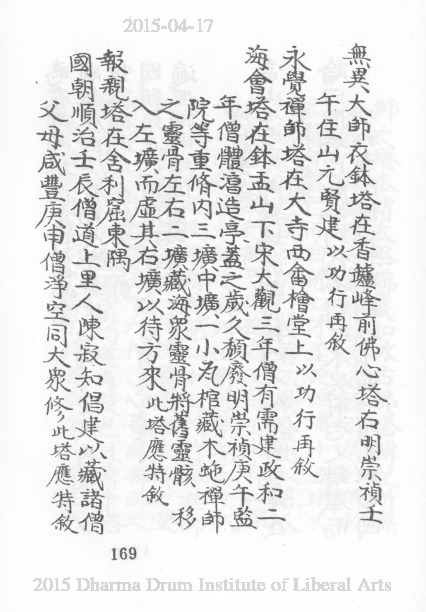 2015-04-17
無異大師衣鉢塔在香爐峰前佛心塔右明崇禎壬
午住山元賢建以功行再敘
永覺禪師塔在大寺西畬檜堂上以功行再敘
海會塔在鉢盂山下宋大觀三年僧有需建政和二
年僧體瀉造亭蓋之歲久頹廢明崇禎庚午監
院等重脩內三壙中壙一小瓦棺藏木蛇禪師
之靈骨左右二壙藏海眾靈骨將舊靈骸移
入左壙而虛其右壙以待方來此塔應特敘
報親塔在舍利窟東隅
國朝順治壬辰僧道上里人陳寂知倡建以藏諸僧
父母咸豐庚申僧淨空同大眾修此塔應特敘
169
2015 Dharma Drum Institute of Liberal Arts